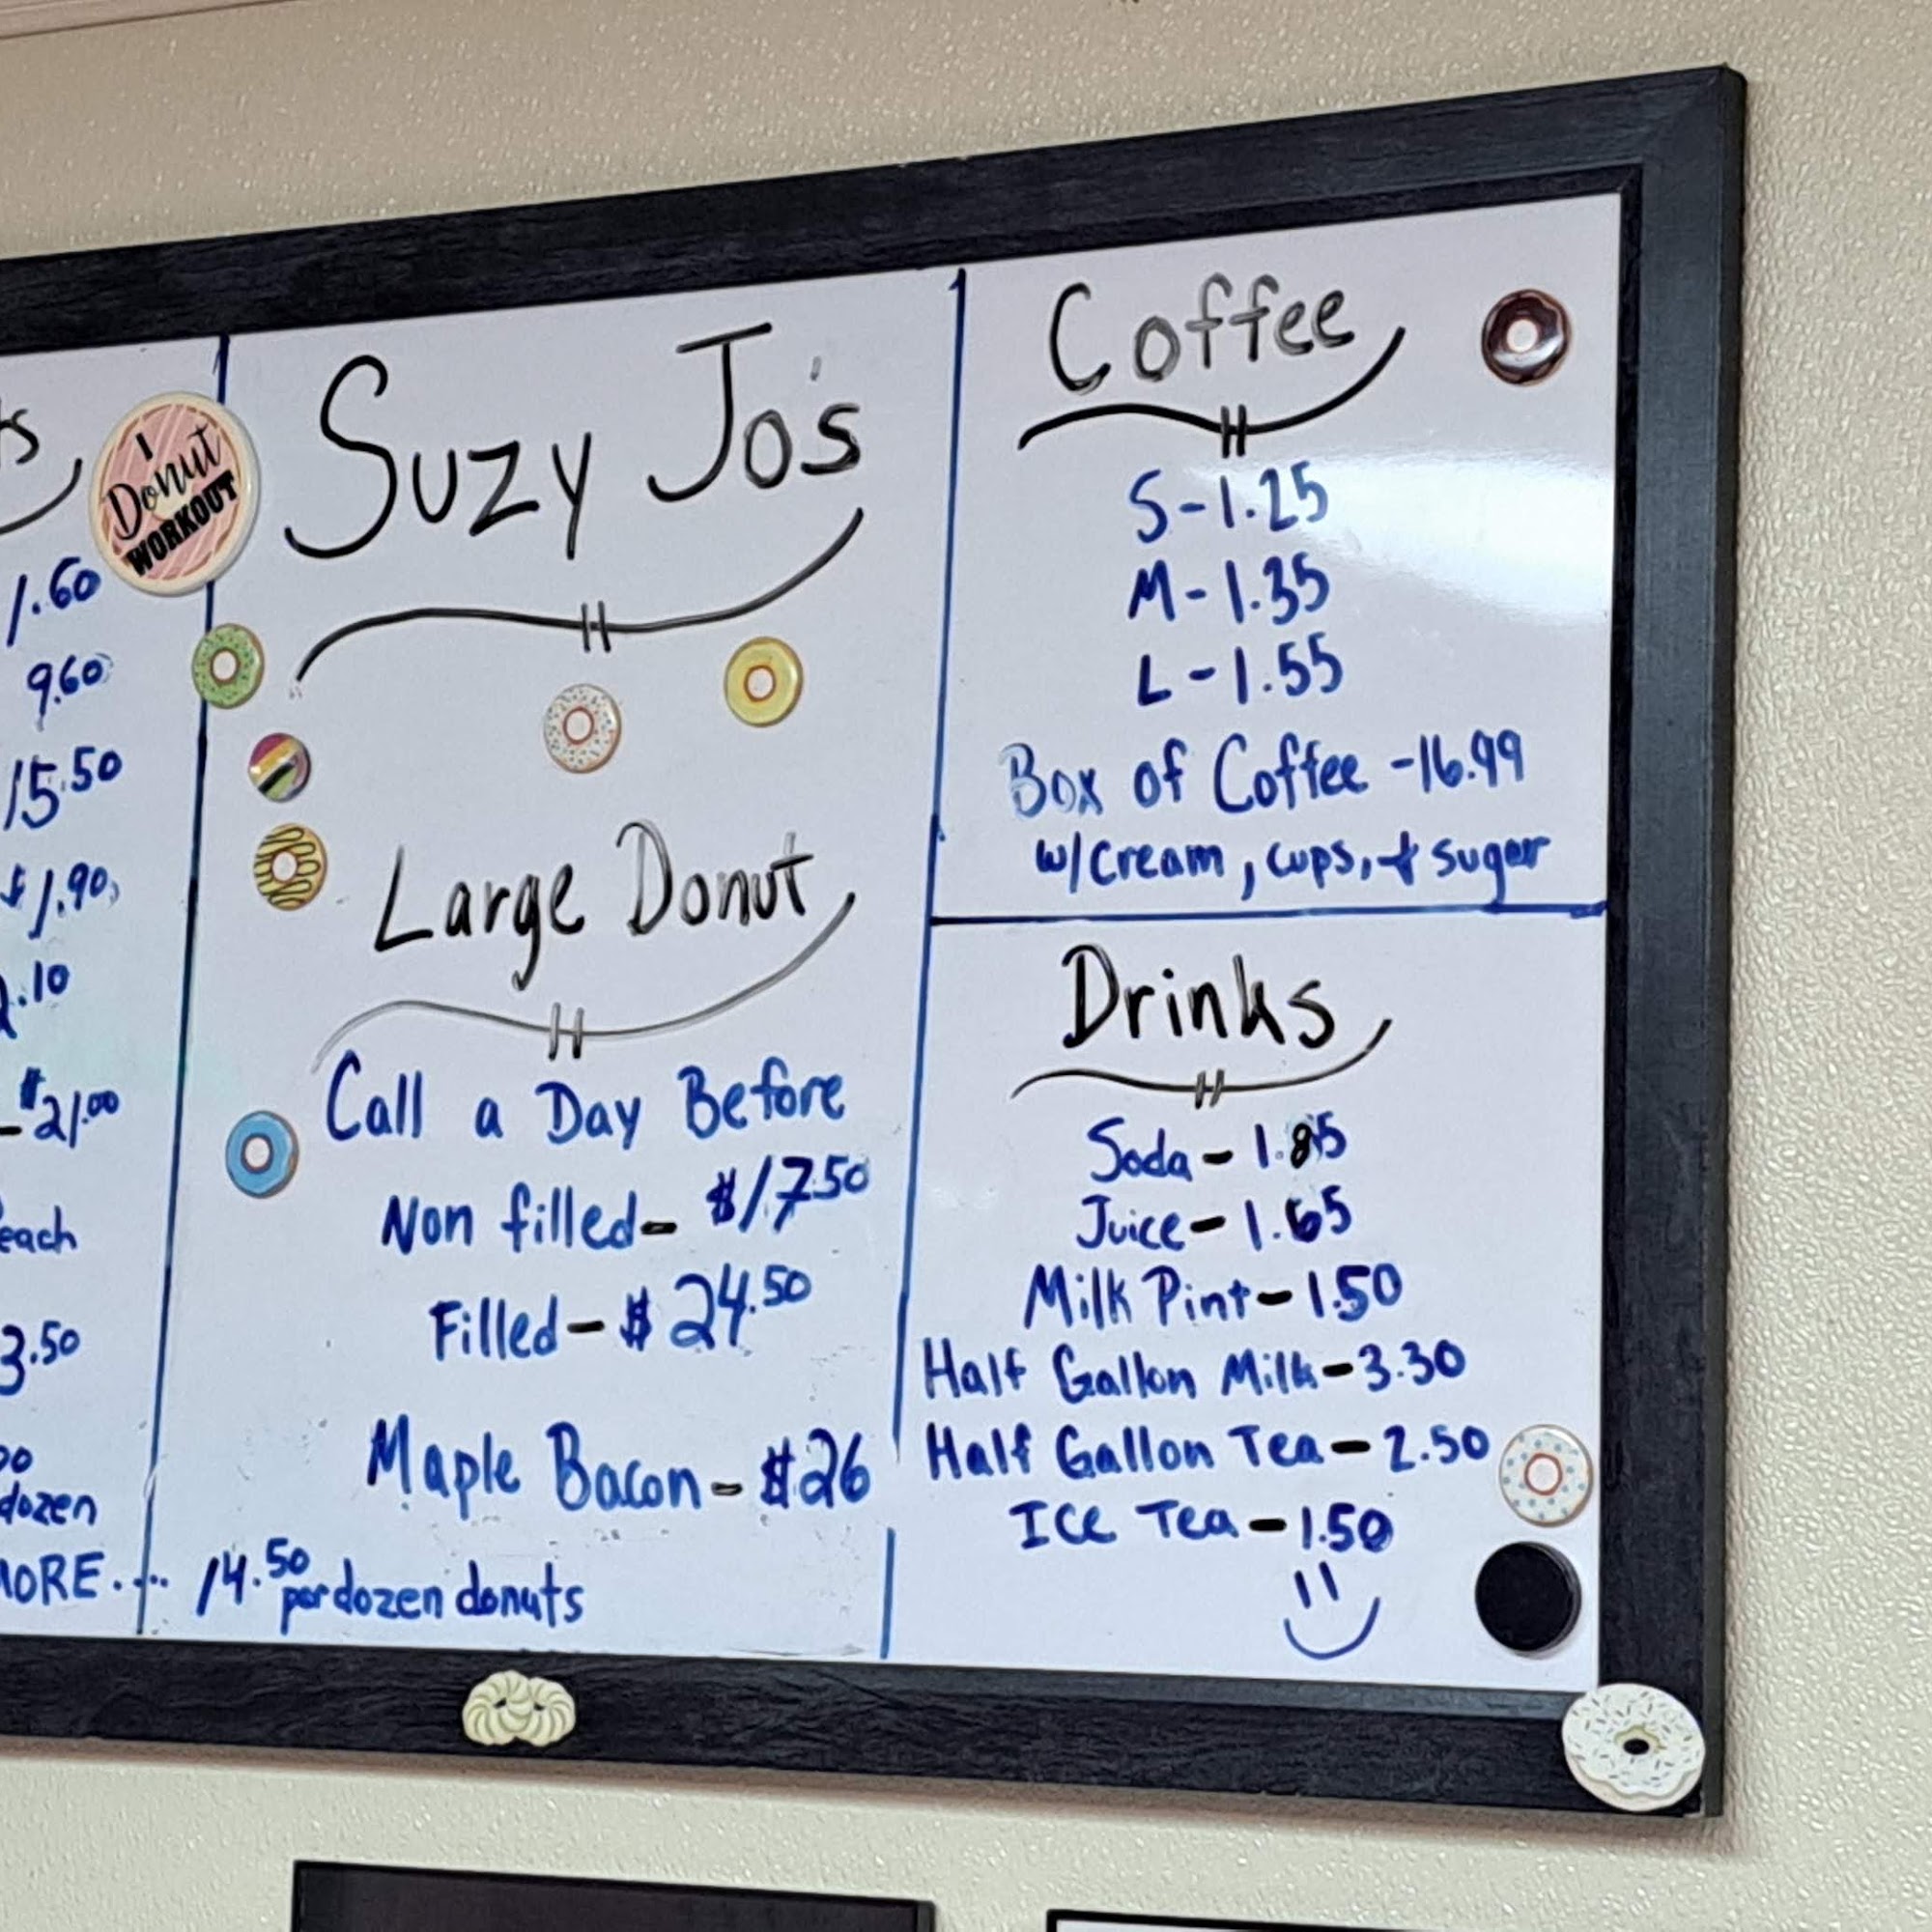 I
Donut
WORKOUT
1.60
9.60
15.50
$1.90
.10
- $21.00
each
3.50
dozen
MORE.... 14.50 per dozen donuts
Suzy Jo's
Large Donut
Call a Day Before
Non filled- $17.50
Filled- $24.50
Maple Bacon- $26
Coffee
S-1.25
M-1.35
L-1.55
Box of Coffee -16.99
w/cream, cups, + sugar
Drinks
Soda- 1.85
Juice- 1.65
Milk Pint- 1.50
Half Gallon Milk- 3.30
Half Gallon Tea- 2.50
Ice Tea- 1.50